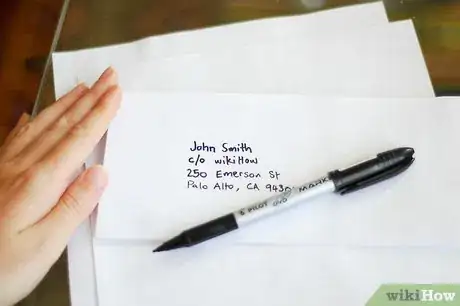 John Smith
c/o wikiHow
250 Emerson St
Palo Alto, CA 9430
PILOT
wikiHow